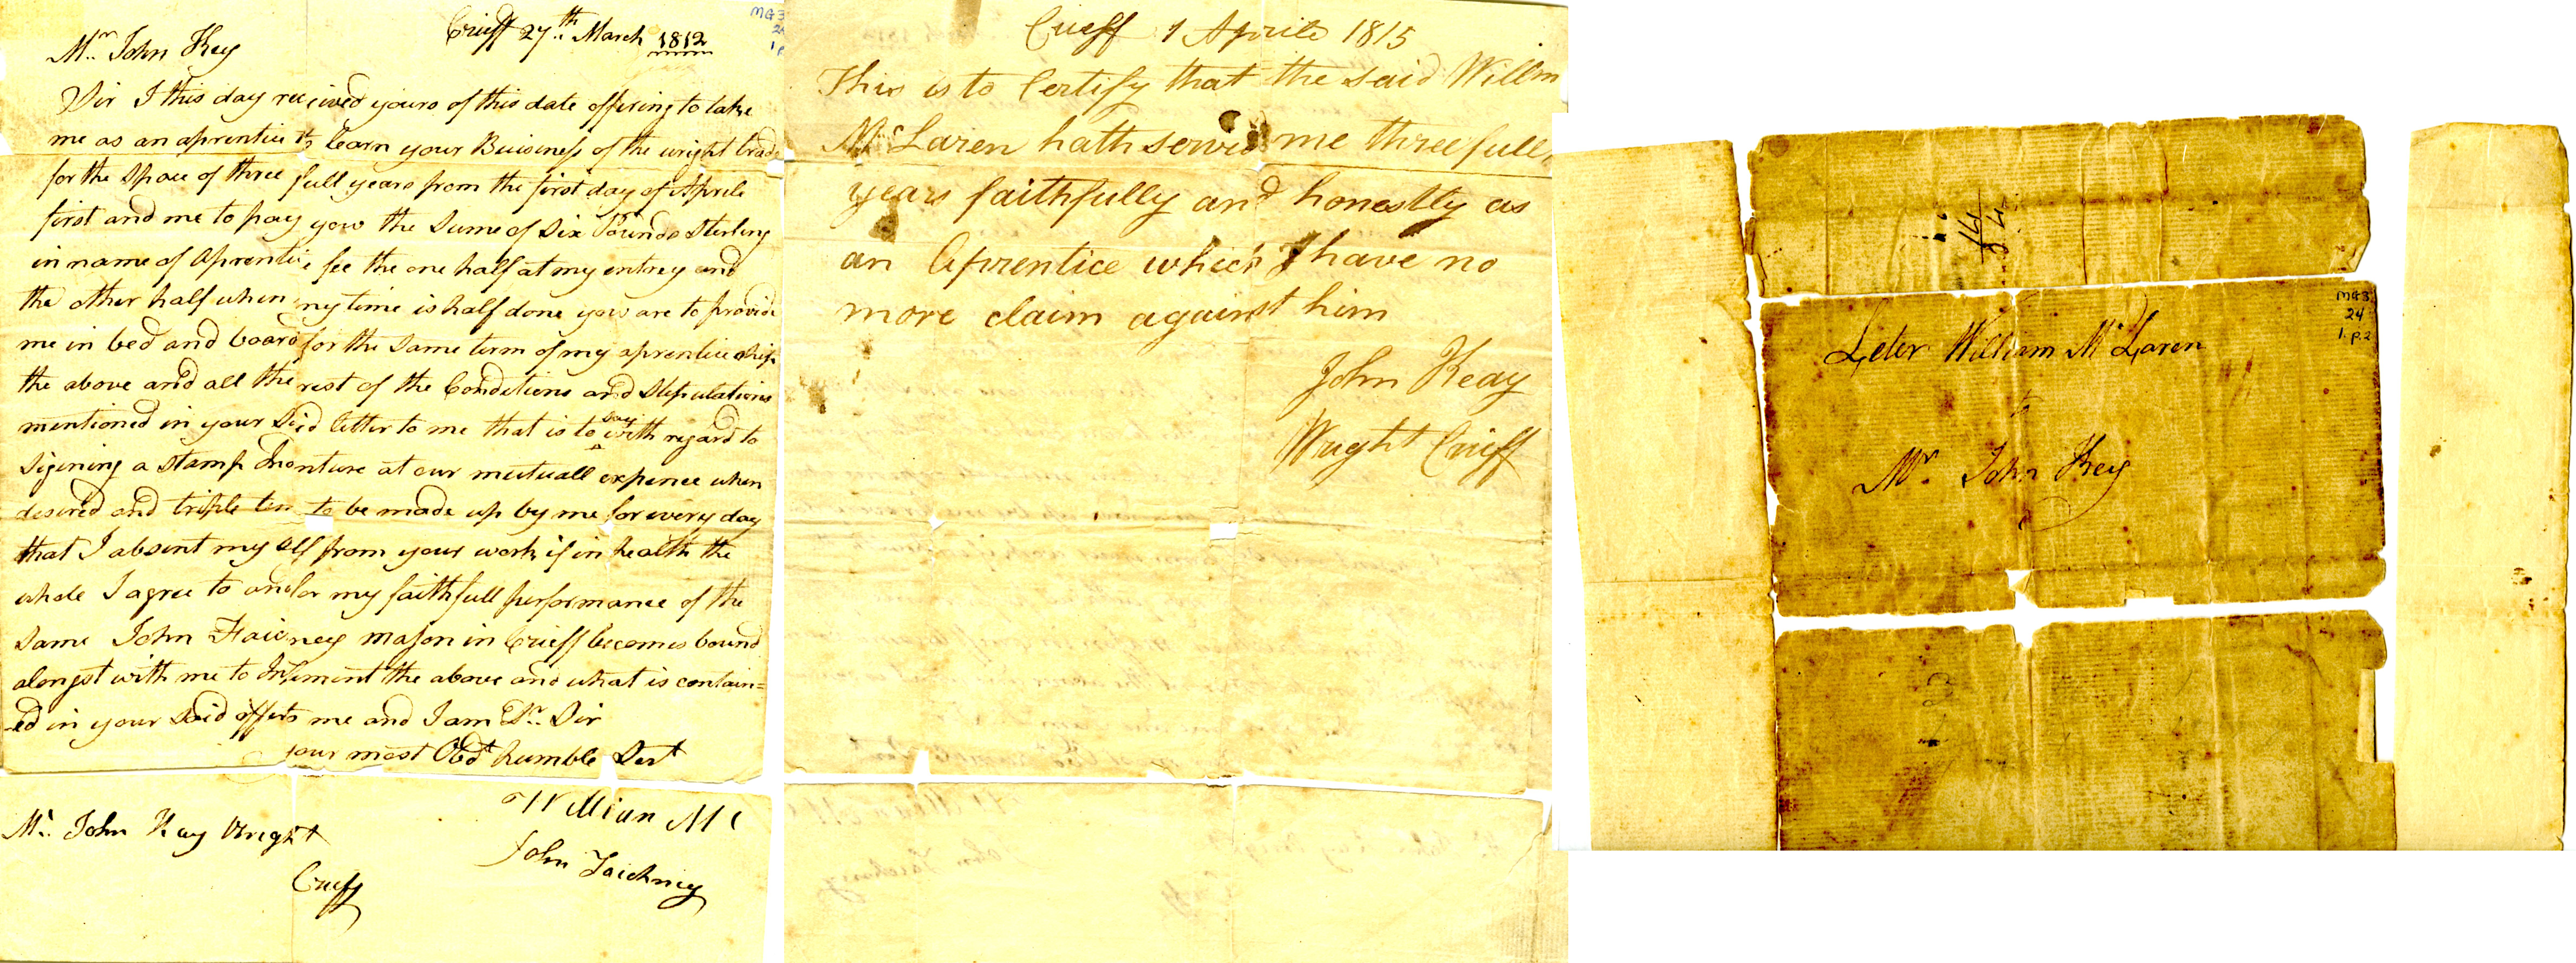 Crieff 27th March 1812
MG3
24
1. p
Mr. John Key
Sir I this day received yours of this date offering to take
me as an aprentice to learn your Buisiness of the wright trade
for the space of three full years from the first day of Aprile
first and me to pay yow the sume of six Pounds sterling
in name of aprentice fee the one half at my entrey and
the other half when my time is half done yow are to provide
me in bed and board for the same term of my aprenticeship
the above and all the rest of the Conditions and stipulations
mentioned in your said letter to me that is to say with regard to
sigining a stamp Indenture at our mutuall expence when
desired and triple time to be made up by me for every day
that I absent my self from your work if in health the
whole I agree to and for my faithfull performance of the
same John Faichney mason in Crieff becomes bound
alongst with me to Impliment the above and what is contain=
=ed in your said offer to me and I am Dr. Sir
your most Obdt humble Sert
William Mc
John Faichney
Mr. John Kay Wright
Crieff
Crieff 1 Aprile 1815
This is to Certify that the said Willm
McLaren hath served me three full
years faithfully and honestly as
an Aprentice which I have no
more claim against him
John Keay
Wright Crieff
MG3
24
1. p.2
Leter William McLaren
to
Mr. John Key